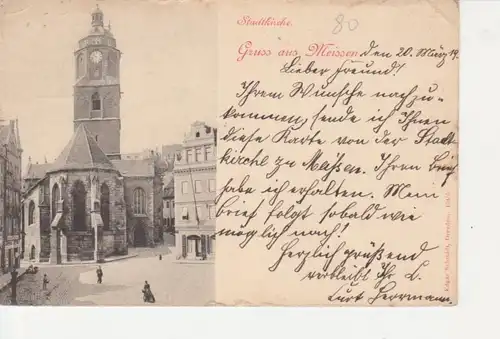 Stadtkirche.
80
Gruss aus Meissen, den 20. März 19.
Lieber Freund!
Ihrem Wunsche nachzu-
kommen, sende ich Ihnen
diese Karte von der Stadt
kirche zu Meißen. Ihren Brief
habe ich erhalten. Mein
Brief folgt sobald wie
möglich nach!
Herzlich grüßend
verbleibt Ihr L.
Curt Herrmann.
Dresden.